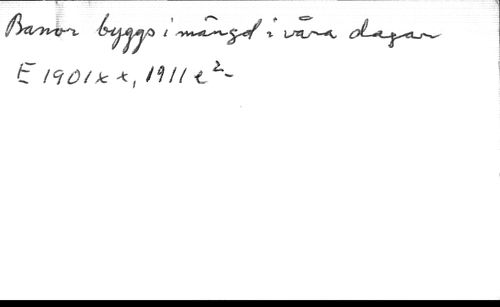 Banor byggs i mängd i våra dagar
E 1901 x x, 1911 e²-